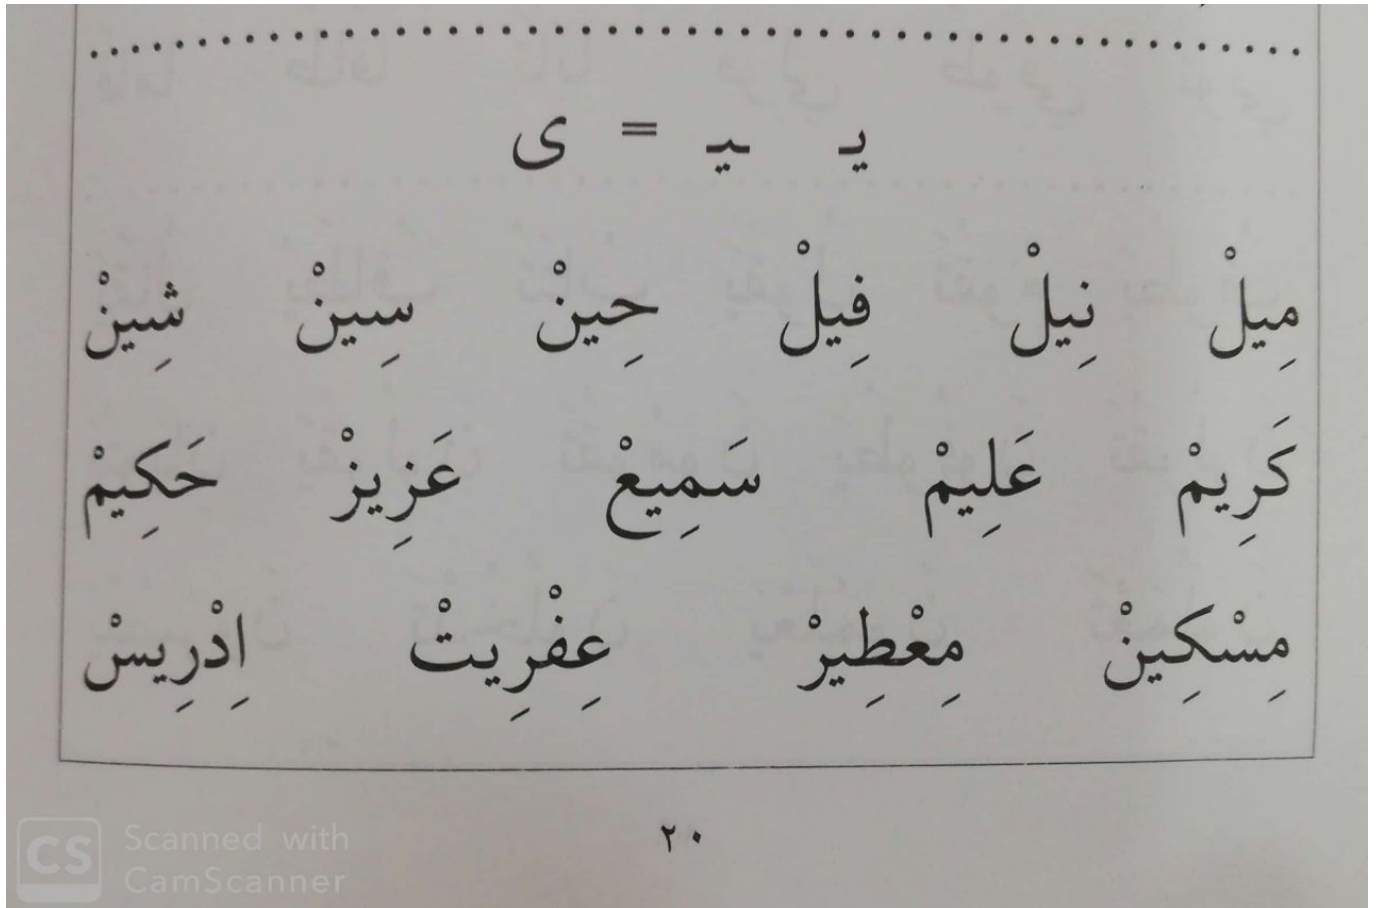 يـ ـيـ = ى
مِيلْ نِيلْ فِيلْ حِينْ سِينْ شِينْ
كَرِيمْ عَلِيمْ سَمِيعْ عَزِيزْ حَكِيمْ
مِسْكِينْ مِعْطِيرْ عِفْرِيتْ اِدْرِيسْ
٢٠
CS Scanned with
CamScanner